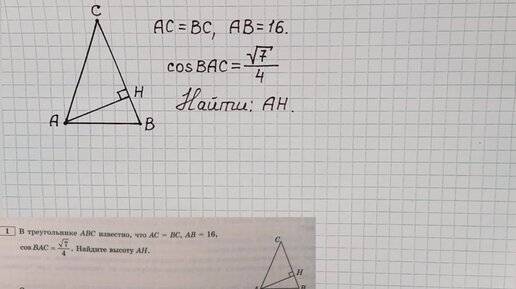 C
AC = BC, AB = 16.
cos BAC = √7/4
H
Найти: AH.
A
B
1 В треугольнике ABC известно, что AC = BC, AB = 16,
cos BAC = √7/4. Найдите высоту AH.
C
H
A B